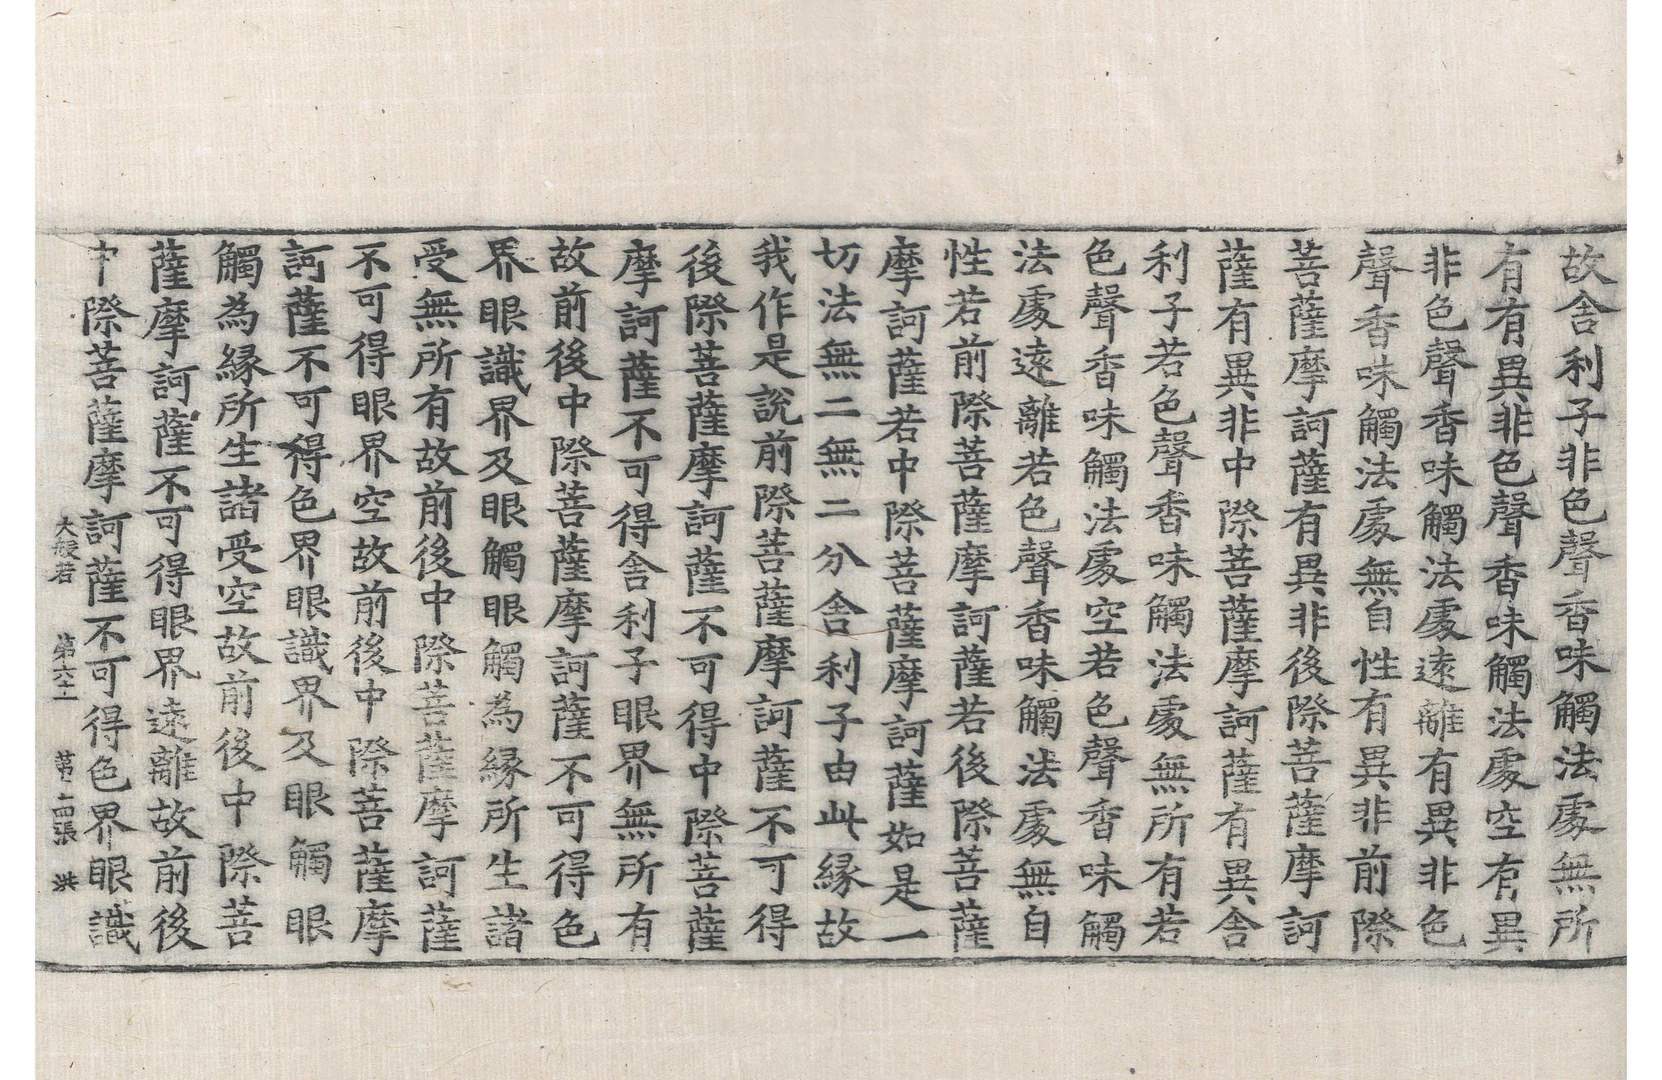 故舍利子非色聲香味觸法處無所
有有異非色聲香味觸法處空有異
非色聲香味觸法處遠離有異非色
聲香味觸法處無自性有異非前際
菩薩摩訶薩有異非後際菩薩摩訶
薩有異非中際菩薩摩訶薩有異舍
利子若色聲香味觸法處無所有若
色聲香味觸法處空若色聲香味觸
法處遠離若色聲香味觸法處無自
性若前際菩薩摩訶薩若後際菩薩
摩訶薩若中際菩薩摩訶薩如是一
切法無二無二分舍利子由此緣故
我作是說前際菩薩摩訶薩不可得
後際菩薩摩訶薩不可得中際菩薩
摩訶薩不可得舍利子眼界無所有
故前後中際菩薩摩訶薩不可得色
界眼識界及眼觸眼觸為緣所生諸
受無所有故前後中際菩薩摩訶薩
不可得眼界空故前後中際菩薩摩
訶薩不可得色界眼識界及眼觸眼
觸為緣所生諸受空故前後中際菩
薩摩訶薩不可得眼界遠離故前後
中際菩薩摩訶薩不可得色界眼識
大般若 第六十一 第十四張 洪